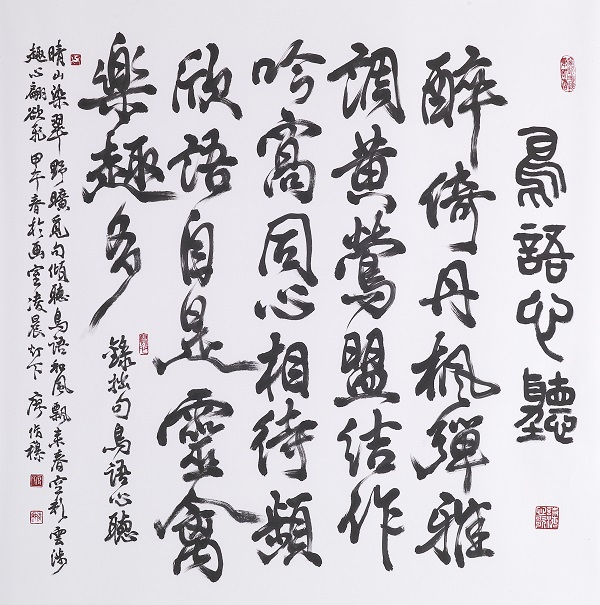 鳥語心聽
醉倚丹楓彈雅
調黃鶯盟結作
吟窩同心相待頻
欣語自是靈禽
樂趣多
錄拙句鳥語心聽
晴山染翠野曠 句傾聽鳥語和風飄來春空彩雲涉
趣心翩欲飛 甲午春於画室凌晨灯下 廖俊穆